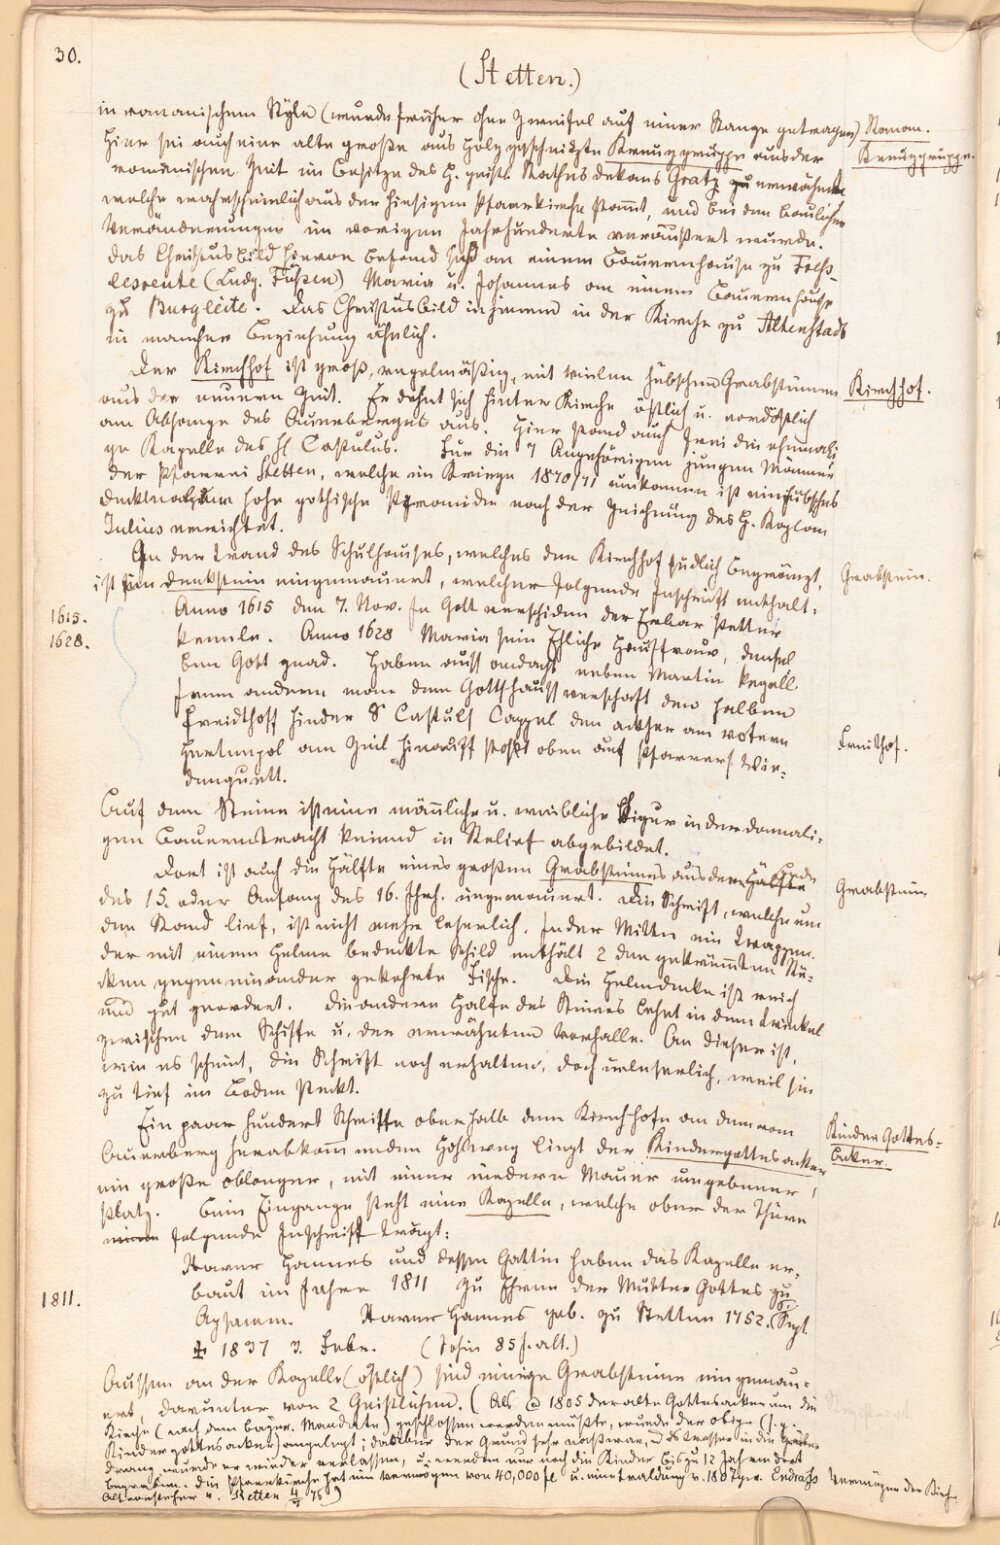 30.
(Stetten.)
in romanischem Style (wurde früher ohne Zweifel auf einer Stange getragen) Roman.
Hier sei auch eine alte große aus Holz geschnitzte Kreuzgruppe aus der Kreuzgruppe.
romanischen Zeit im Besitze des H. geistl. Rathes Dekans Gratz zu erwähnen
welche wahrscheinlich aus der hiesigen Pfarrkirche stammt, und bei den baulichen
Veränderungen im vorigen Jahrhunderte veräußert wurde.
Das Christusbild hievon befand sich an einem Bauernhause zu
lesreute (Ldg. Füßen) Maria u. Johannes an einem Bauernhause
zu Burgleite. Das Christusbild in in der Kirche zu Altenstadt
in mancher Beziehung ähnlich.
Der Kirchhof ist groß, regelmäßig, mit vielen hübschen Grabsteinen Kirchhof.
aus der neuern Zeit. Er dehnt sich hinter Kirche östlich u. nordöstlich
am Abhange des Auerberges aus. Hier stand auch frei die ehemali
ge Kapelle des hl Castulus. Für die 7 Angehörigen jungen Männer
der Pfarrei Stetten, welche im Kriege 1870/71 umkamen ist ein hübsches
Denkmal, eine hohe gothische Pyramide nach der Zeichnung des H. Kaplan
Julius errichtet.
An der Wand des Schulhauses, welches den Kirchhof südlich begränzt, Grabstein.
ist ein Denkstein eingemauert, welcher folgende Inschrift enthält:
1615. Anno 1615 den 7. Nov. In Gott verschiden der Erbar Petter
1628. Kemele. Anno 1628 Maria sein Ehliche Hausfrauw, denen
bee Gott gnad. Haben auss andacht neben Martin Kegell
irem andern man dem Gottshauss verschaft den halben
Freidthoff hinder S Castuls Cappel den ackher am rotern Freithof.
am Zeil hinauff stosst oben auf Pfarrers Wir=
Auf dem Steine ist eine männliche u. weibliche Figur in der damali=
gen Bauerntracht knieend in Relief abgebildet.
Dort ist auch die Hälfte eines großen Grabsteines aus dem Ende
des 15. oder Anfang des 16. Jhrh. eingemauert. Die Schrift, welche um Grabstein
den Rand lief, ist nicht mehr leserlich. In der Mitte ein Wappen.
Der mit einem Helme bedeckte Schild enthält 2 den gekrümmten Rü=
cken gegen einander gekehrte Fische. Die Helmdecke ist reich
und gut geordnet. Die andere Hälfte des Steines lehnt in dem Winkel
zwischen dem Schiffe u. der erwähnten Vorhalle. An dieser ist,
wie es scheint, die Schrift noch erhalten, doch unleserlich, weil sie
zu tief im Boden steckt.
Ein paar hundert Schritte oberhalb dem Kirchhofe an dem vom
Auerberg herabkommenden Hohlweg liegt der Kindergottesacker Kinder Gottes=
acker.
ein großer oblonger, mit einer niedern Mauer umgebener
Platz. Beim Eingange steht eine Kapelle, welche ober der Thüre
folgende Inschrift trägt:
Xaver Hannes und dessen Gattin haben das Kapelle er=
1811. baut im Jahre 1811 zu Ehren der Mutter Gottes zu
Xaver Hannes geb. zu Stetten 1752. Sept
† 1837 3. Febr. (Sohin 85 J. alt.)
Aussen an der Kapelle (östlich) sind einige Grabsteine eingemau=
ert, darunter von 2 Geistlichen. (Als @ 1805 der alte Gottesacker um die
Kirche (nach dem bayer. Mandate) geschlossen werden mußte, wurde der obige (s.g.
Kindergottesacker) angelegt; da aber der Grund sehr naß war, u. das Wasser in die Gräber
drang wurde er wieder verlassen, u. werden nur noch die Kinder bis zu 12 Jahren dort
begraben. Die Pfarrkirche hat ein Vermögen von 40,000 fl u. eine Waldung v. 180 Tgw. Vermögen der Kirche
Altvorsteher v. Stetten 75)